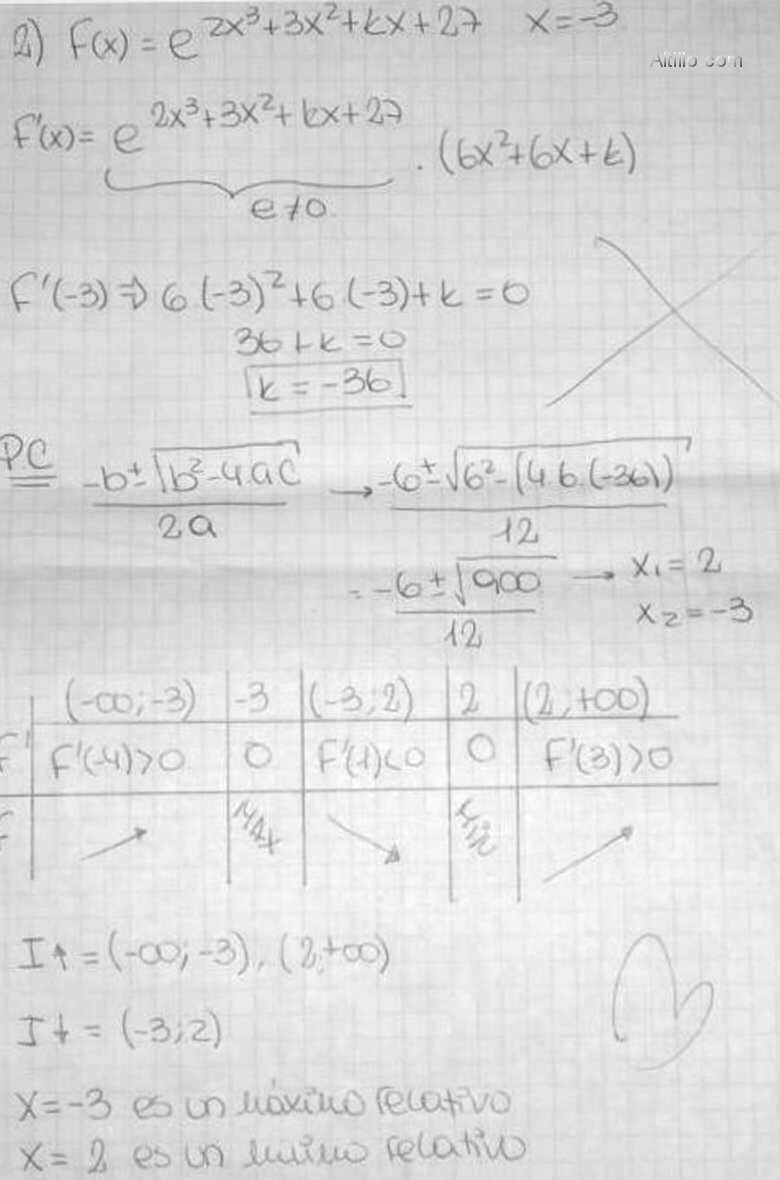 2) F(x) = e^{2x³+3x²+kx+27} x=-3
Altillo.com
F'(x) = e^{2x³+3x²+kx+27} . (6x²+6x+k)
e≠0
F'(-3) ⇒ 6(-3)²+6(-3)+k=0
36+k=0
k=-36
PC -b±√b²-4ac / 2a → -6±√6²-(4 6.(-36)) / 12
= -6±√900 / 12 → x₁=2
x₂=-3
(-∞;-3) -3 (-3;2) 2 (2;+∞)
F' F'(-4)>0 0 F'(1)<0 0 F'(3)>0
F ↗ MAX ↘ MIN ↗
I↑=(-∞;-3),(2;+∞)
I↓=(-3;2)
X=-3 es un máximo relativo
X=2 es un mínimo relativo